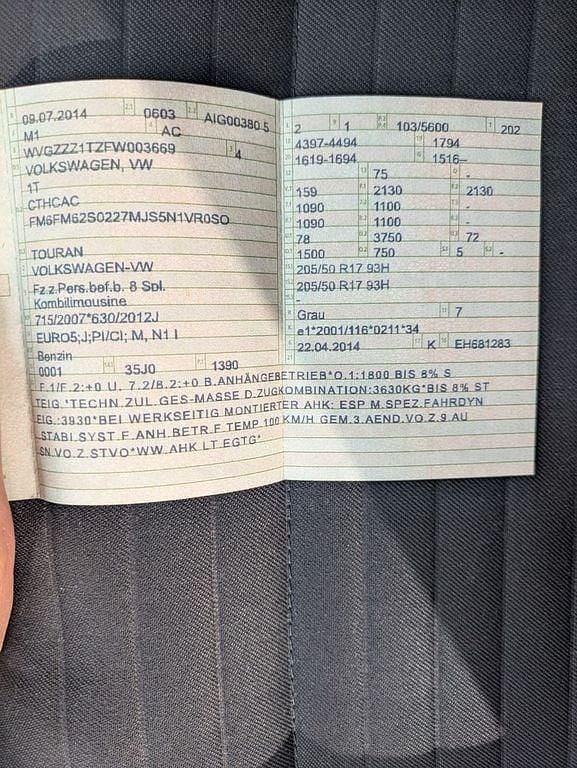 09.07.2014 0603 AIG00380 5
M1 AC
WVGZZZ1TZFW003669 4
VOLKSWAGEN, VW
1T
CTHCAC
FM6FM62S0227MJS5N1VR0SO
TOURAN
VOLKSWAGEN-VW
Fz.z.Pers.bef.b. 8 Spl.
Kombilimousine
715/2007*630/2012J
EURO5;J;PI/CI; M, N1 I
Benzin
0001 35J0 1390
2 1 103/5600 202
4397-4494 1794
1619-1694 1516–
75 -
159 2130 2130
1090 1100 -
1090 1100 -
78 3750 72
1500 750 5 -
205/50 R17 93H
205/50 R17 93H
-
Grau 7
e1*2001/116*0211*34
22.04.2014 K EH681283
F.1/F.2:+0 U. 7.2/8.2:+0 B.ANHÄNGEBETRIEB*O.1:1800 BIS 8% S
TEIG.*TECHN.ZUL.GES-MASSE D.ZUGKOMBINATION:3630KG*BIS 8% ST
EIG.:3930*BEI WERKSEITIG MONTIERTER AHK: ESP M.SPEZ.FAHRDYN
.STABI.SYST.F.ANH.BETR.F TEMP 100 KM/H GEM.3.AEND.VO.Z.9 AU
SN.VO.Z.STVO*WW.AHK LT.EGTG*